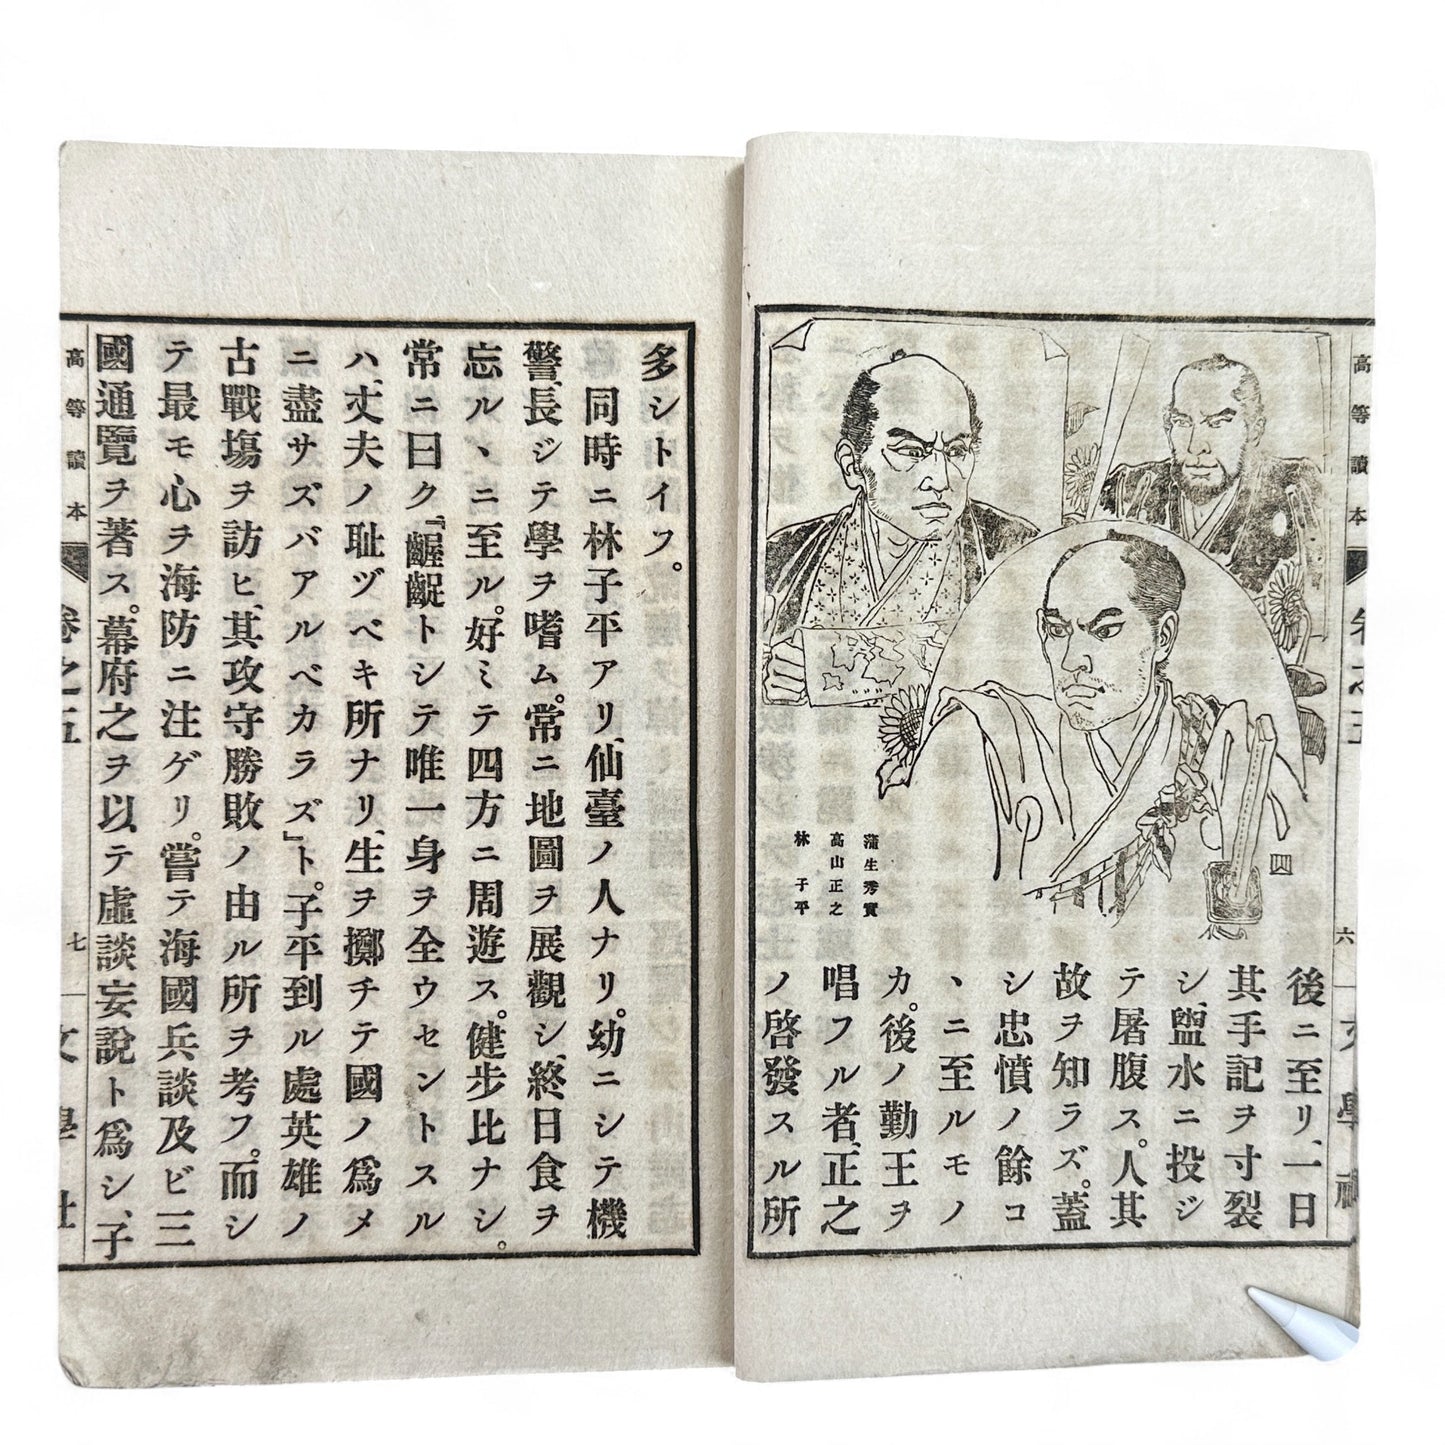 高等讀本
六
四
蒲生秀實
高山正之
林子平
後ニ至リ、一日
其手記ヲ寸裂
シ、盥水ニ投ジ
テ屠腹ス。人其
故ヲ知ラズ。蓋
シ忠憤ノ餘コ
ヽニ至ルモノ
カ。後ノ勤王ヲ
唱フル者、正之
ノ啓發スル所
多シトイフ。
同時ニ林子平アリ、仙臺ノ人ナリ。幼ニシテ機
警、長ジテ學ヲ嗜ム。常ニ地圖ヲ展觀シ、終日食ヲ
忘ルヽニ至ル。好ミテ四方ニ周遊ス。健步比ナシ。
常ニ曰ク『齷齪トシテ唯一身ヲ全ウセントスル
ハ、丈夫ノ耻ヅベキ所ナリ、生ヲ擲チテ國ノ爲メ
ニ盡サズバアルベカラズ』ト。子平到ル處英雄ノ
古戰塲ヲ訪ヒ、其攻守勝敗ノ由ル所ヲ考フ。而シ
テ最モ心ヲ海防ニ注ゲリ。嘗テ海國兵談及ビ三
國通覽ヲ著ス。幕府之ヲ以テ虛談妄說ト爲シ、子
高等讀本
卷之五
七
文學社